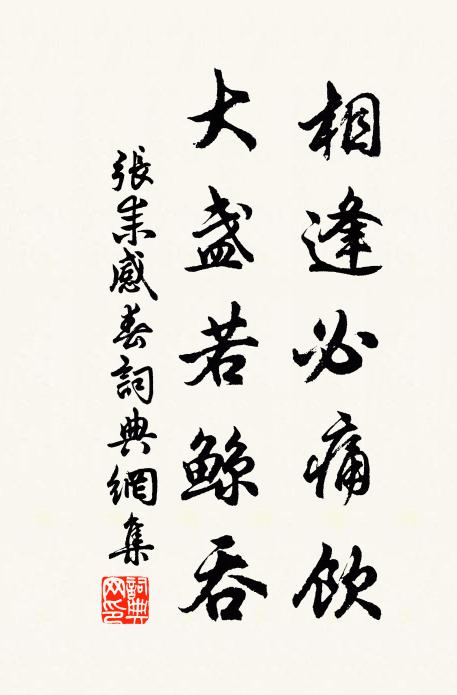 相逢必痛飲
大盞若鲸吞
張耒感春詞典網集
詞典
网印